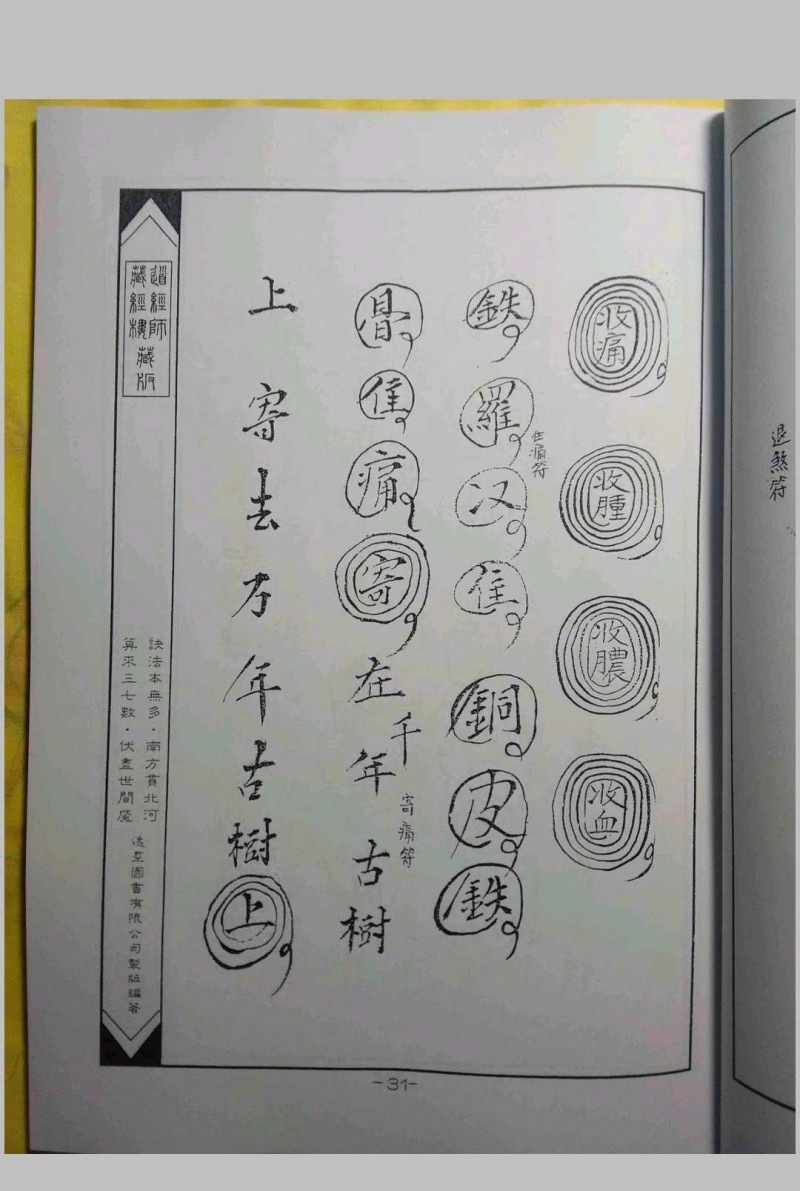 退煞符
收痛
收腫
收膿
收血
鉄羅汉隹銅皮鉄
住痛符
骨隹痛寄在千年古樹
寄痛符
上寄去万年古樹上
道經師
藏經樓藏版
訣法本無多．南方貫北河
算來三七數．伏盡世間魔
逸羣圖書有限公司製版編著
-31-